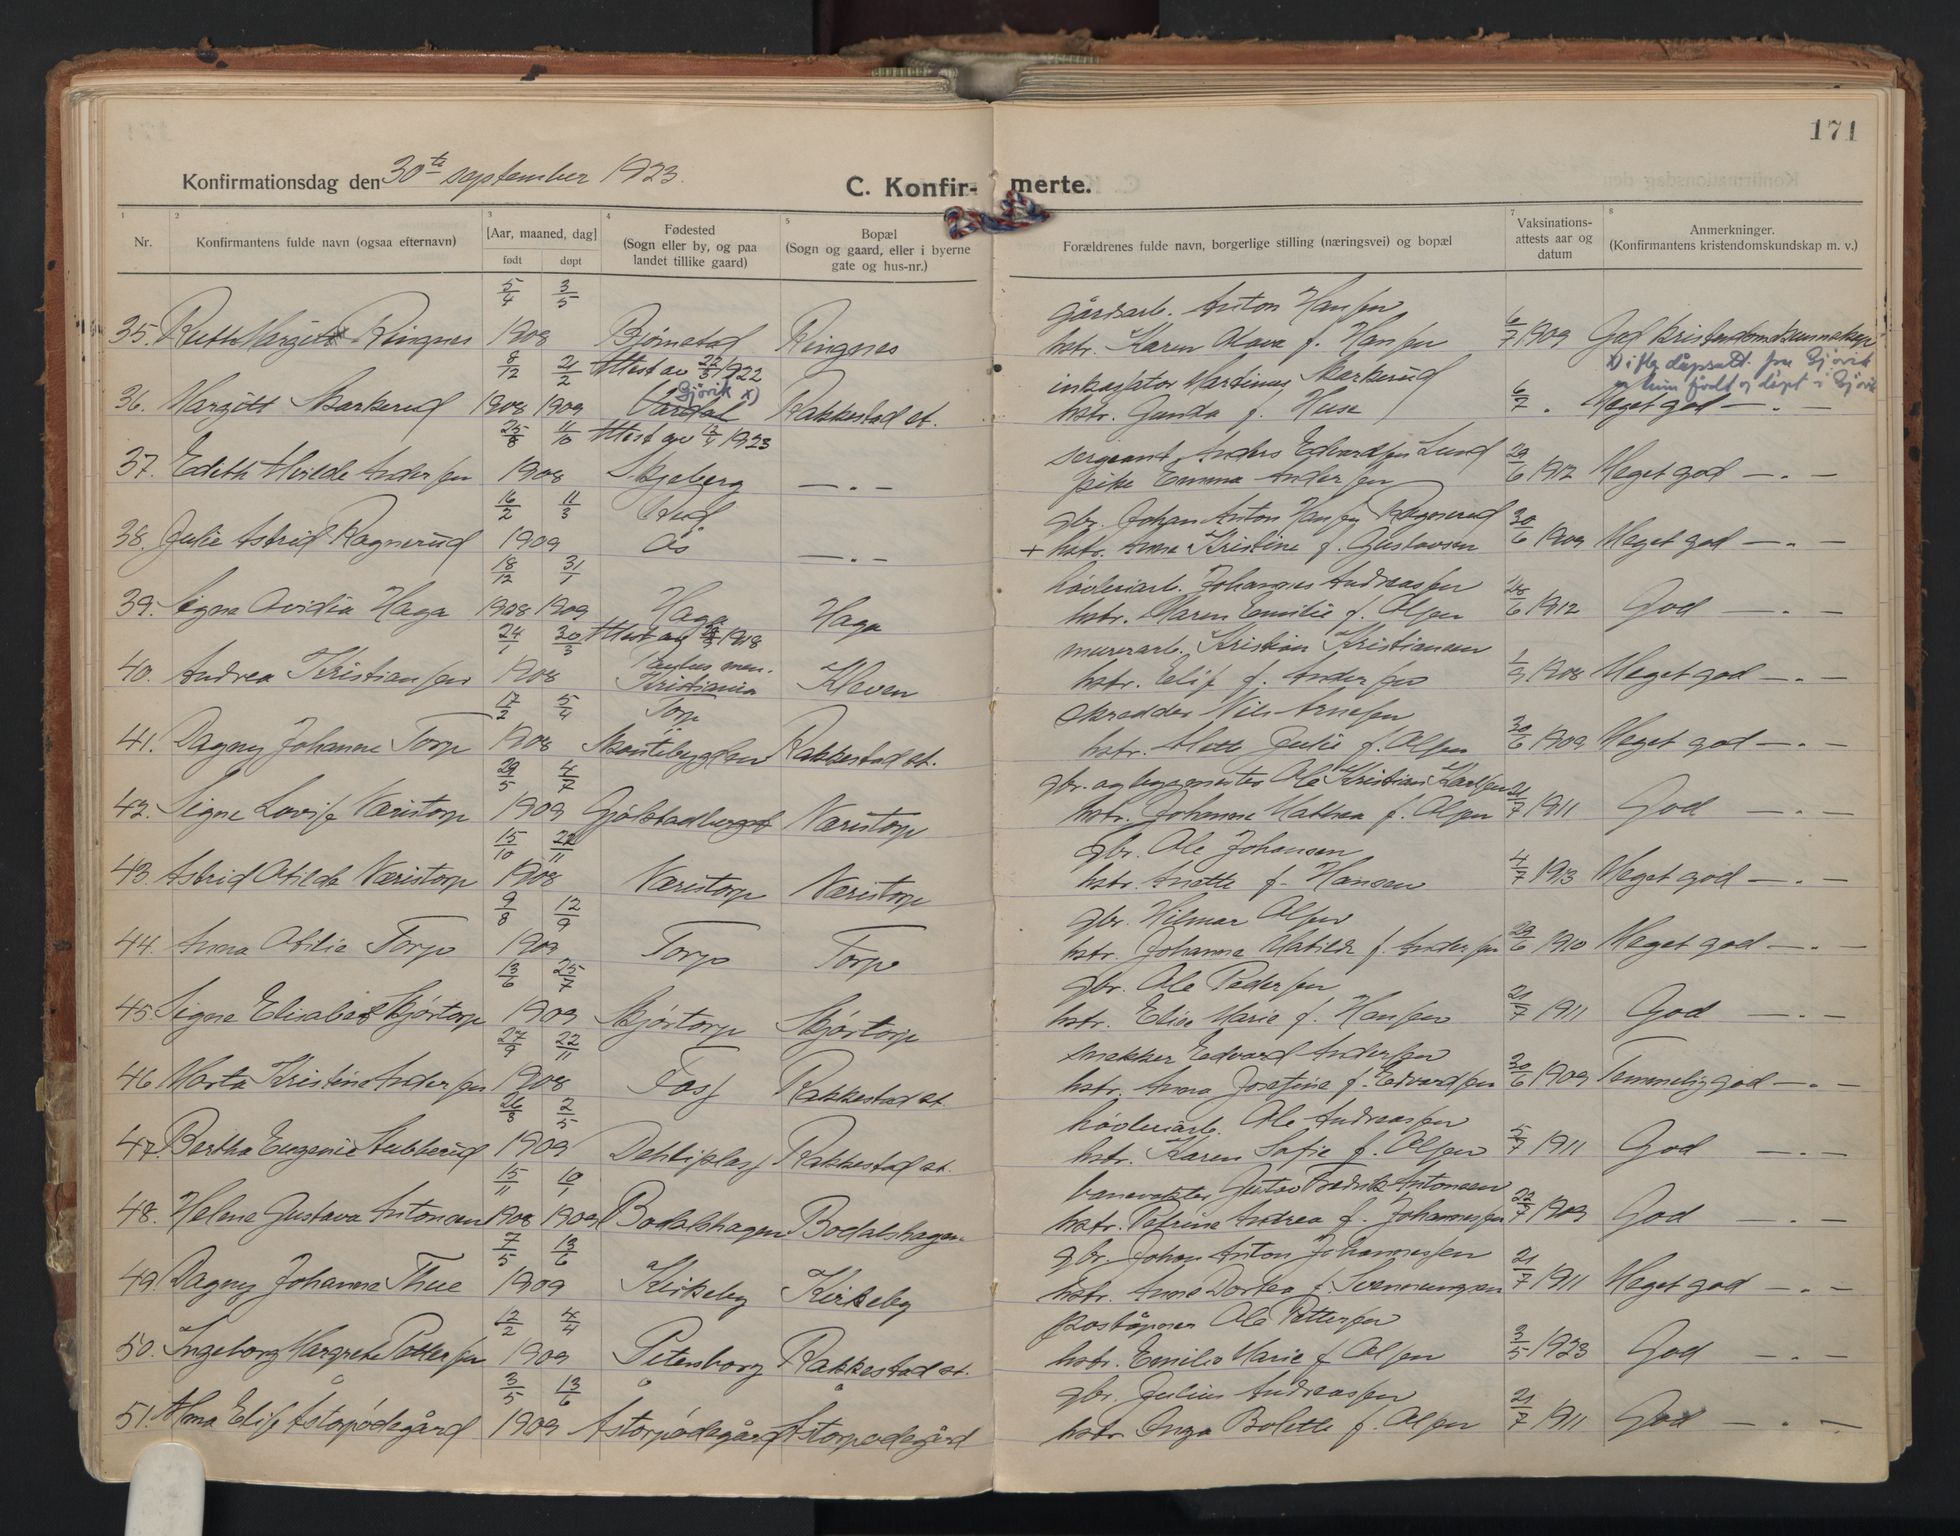 171
Konfirmationsdag den 30te september 1923.
C. Konfir- merte.
1 2 3 4 5 7 8
Nr.
Konfirmantens fulde navn (ogsaa efternavn)
[Aar, maaned, dag]
født døpt
Fødested
(Sogn eller by, og paa
landet tillike gaard)
Bopæl
(Sogn og gaard, eller i byerne
gate og hus-nr.)
Forældrenes fulde navn, borgerlige stilling (næringsvei) og bopæl
Vaksinations-
attests aar og
datum
Anmerkninger.
(Konfirmantens kristendomskundskap m. v.)
5/4 3/5 gårdarb. Anton Hansen
35. Ruth Margit Ringnes 1908 Bjørnstad Ringnes hstr. Karen Olava f. Hansen 6/7 1909 God kristendomskunnskap
8/12 21/2 Attest av 22/3 1922 Martinus Skarkerud x) iflg dåpsatt. fra Gjøvik
Gjøvik x) er hun født og døpt i Gjøvik
36. Margitt Skarkerud 1908 1909 Vardal Rakkestad st. hstr. Gunda f. Huse 6/7 " Meget god — . —
25/8 11/10 Attest av 12/4 1923 sergeant Anders Edvardsen Lund
37. Edith Alvilde Andersen 1908 Skjeberg — . — pike Emma Andersen 29/6 1912 Meget god — . —
16/2 11/3 Rud gbr. Johan Anton Hansen Ragnerud
38. Julie Astrid Ragnerud 1909 Os — . — + hstr. Anna Kristine f. Gustavsen 30/6 1909 Meget god — . —
18/12 31/1 høvleriarb. Johannes Andreassen
39. Signe Ovidia Haga 1908 1909 Haga Haga hstr. Maren Emilie f. Olsen 28/6 1912 God — . —
24/1 30/3 Attest av 1918 murerarb. Kristian Kristiansen
Paulus men.
40. Andrea Kristiansen 1908 Kristiania Kleven hstr. Elise f. Andersen 1/9 1908 Meget god — . —
17/2 5/4 Torp skredder Nils Arnesen
41. Dagny Johanne Torp 1908 Skantebygden Rakkestad st. hstr. Alette Julie f. Olsen 30/6 1909 Meget god — . —
29/5 4/7 gbr. og byggmester Ole Kristian Karlsen
42. Signe Lovise Næristorp 1909 Gjølstadberget Næristorp hstr. Johanne Mathea f. Olsen 21/7 1911 God — . —
15/10 22/11 gbr. Ole Johansen
43. Astrid Otilde Næristorp 1908 Næristorp Næristorp hstr. Anette f. Hansen 4/7 1913 Meget god — . —
9/8 12/9 gbr. Hilmar Olsen
44. Anna Otilie Torp 1909 Torp Torp hstr. Johanne Matilde f. Andersen 29/6 1910 Meget god — . —
13/6 25/7 gbr. Ole Pedersen
45. Signe Elisabet Skjørtorp 1909 Skjørtorp Skjørtorp hstr. Elise Marie f. Hansen 21/7 1911 God — . —
27/9 22/11 snekker Edvard Andersen
46. Marta Kristine Andersen 1908 Foss Rakkestad st. hstr. Anna Josefine f. Edvardsen 30/6 1909 Temmelig god — . —
26/3 2/5 høvleriarb. Ole Andreassen
47. Bertha Eugenie Stubberud 1909 Dehliplass Rakkestad st. hstr. Karen Sofie f. Olsen 5/7 1911 God — . —
15/11 10/1 banevokter Gustav Fredrik Antonsen
48. Helene Gustava Antonsen 1908 1909 Bodalshagen Bodalshagen hstr. Petrine Andrea f. Johannessen 22/7 1909 God — . —
7/5 13/6 gbr. Johan Anton Johannessen
49. Dagny Johanne Thue 1909 Kirkeby Kirkeby hstr. Anne Dorthea f. Svenningsen 21/7 1911 Meget god — . —
12/2 4/4 poståpner Ole Pettersen
50. Ingeborg Margrete Pettersen 1909 Petersborg Rakkestad st. hstr. Emilie Marie f. Olsen 3/5 1923 God — . —
3/5 13/6 gbr. Julius Andreassen
51. Alma Elise Åstorpødegård 1909 Åstorpødegård Åstorpødegård hstr. Inga Bolette f. Olsen 21/7 1911 God — . —